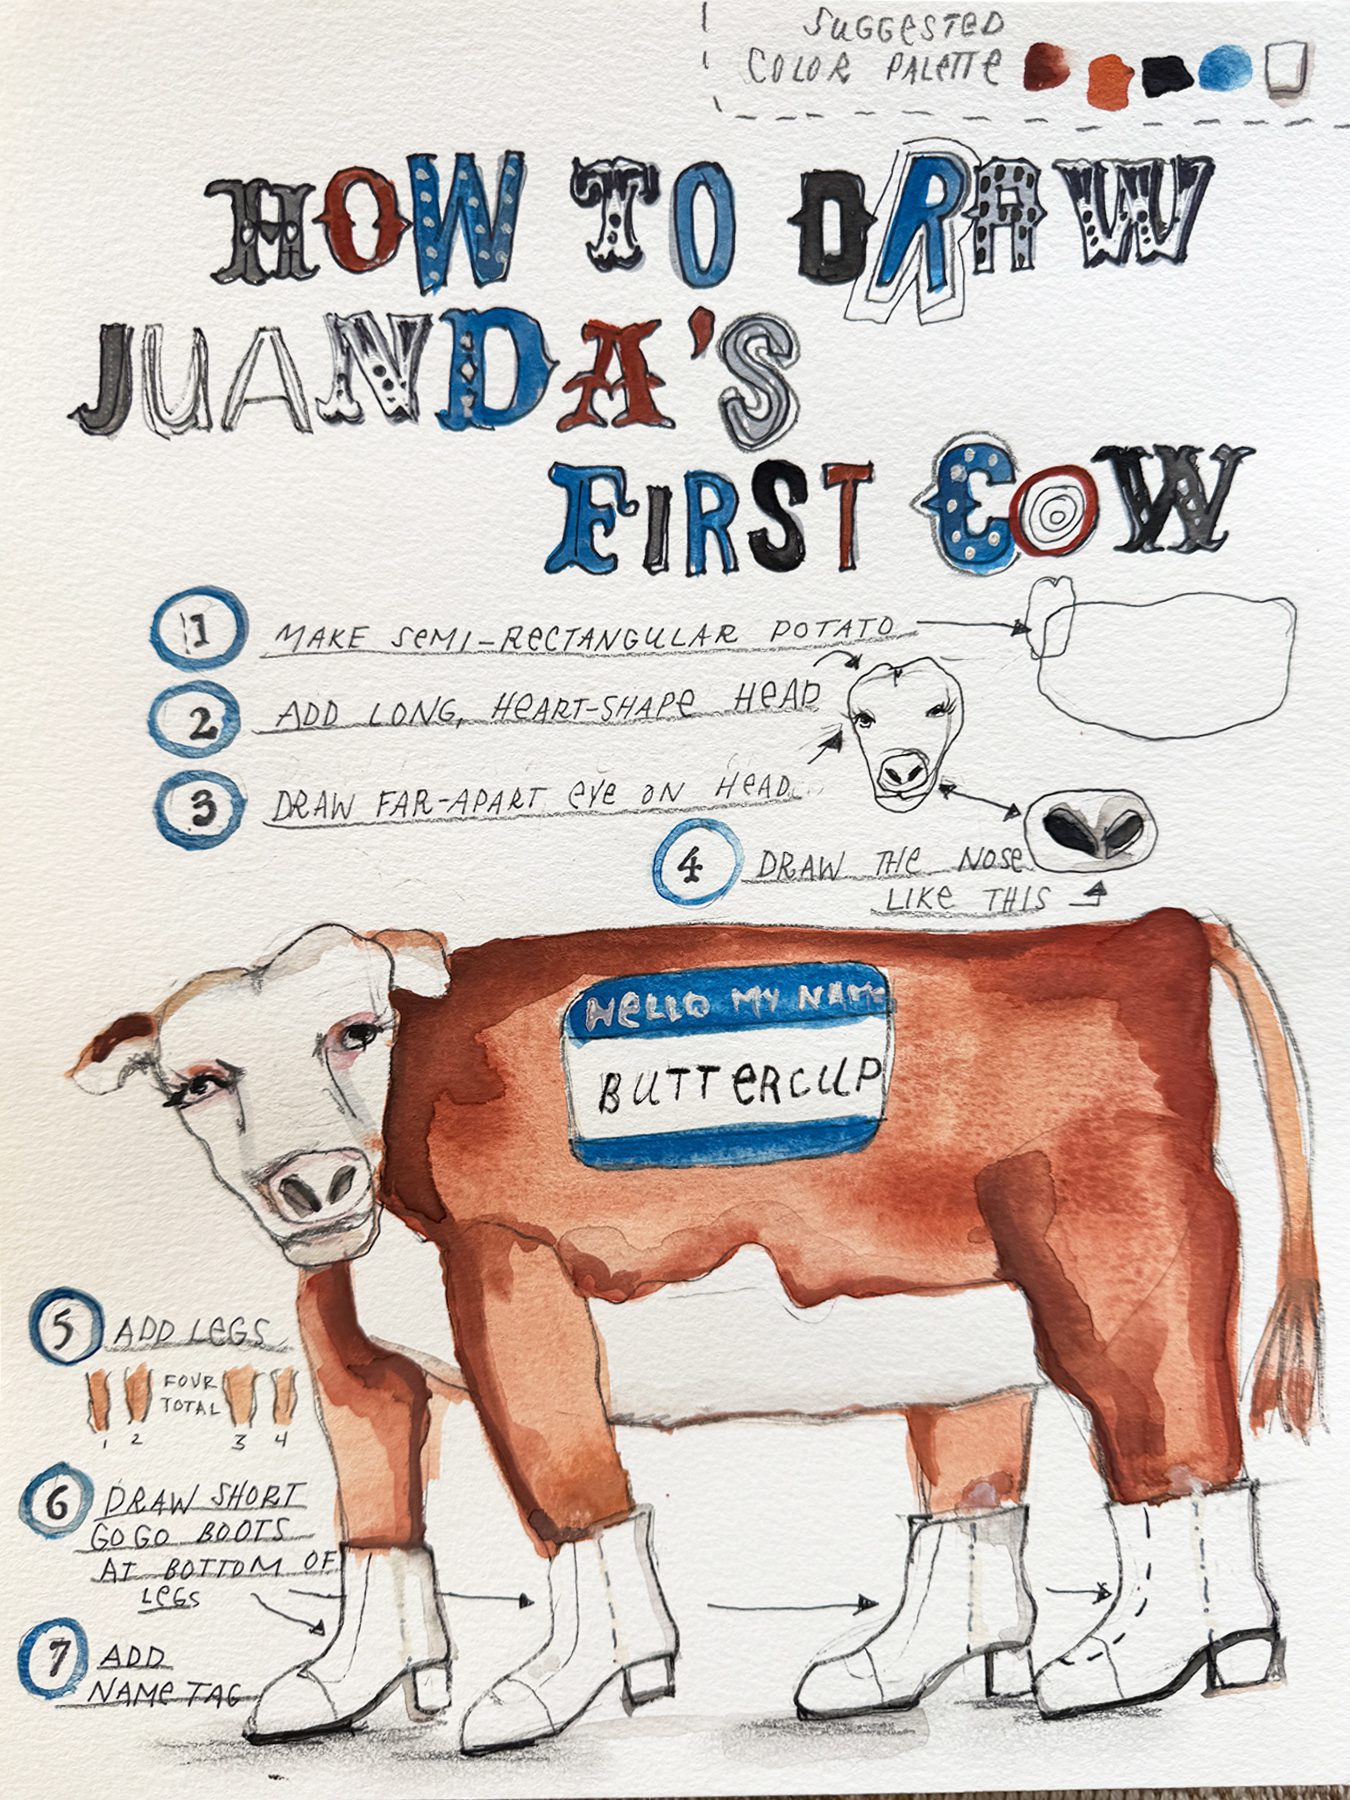 SUGGESTED
COLOR PALETTE
HOW TO DRAW
JUANDA'S
FIRST COW
1 MAKE SEMI-RECTANGULAR POTATO
2 ADD LONG, HEART-SHAPE HEAD
3 DRAW FAR-APART EYE ON HEAD
4 DRAW THE NOSE
LIKE THIS
HELLO MY NAME
BUTTERCUP
5 ADD LEGS
FOUR
TOTAL
1 2 3 4
6 DRAW SHORT
GO GO BOOTS
AT BOTTOM OF
LEGS
7 ADD
NAME TAG